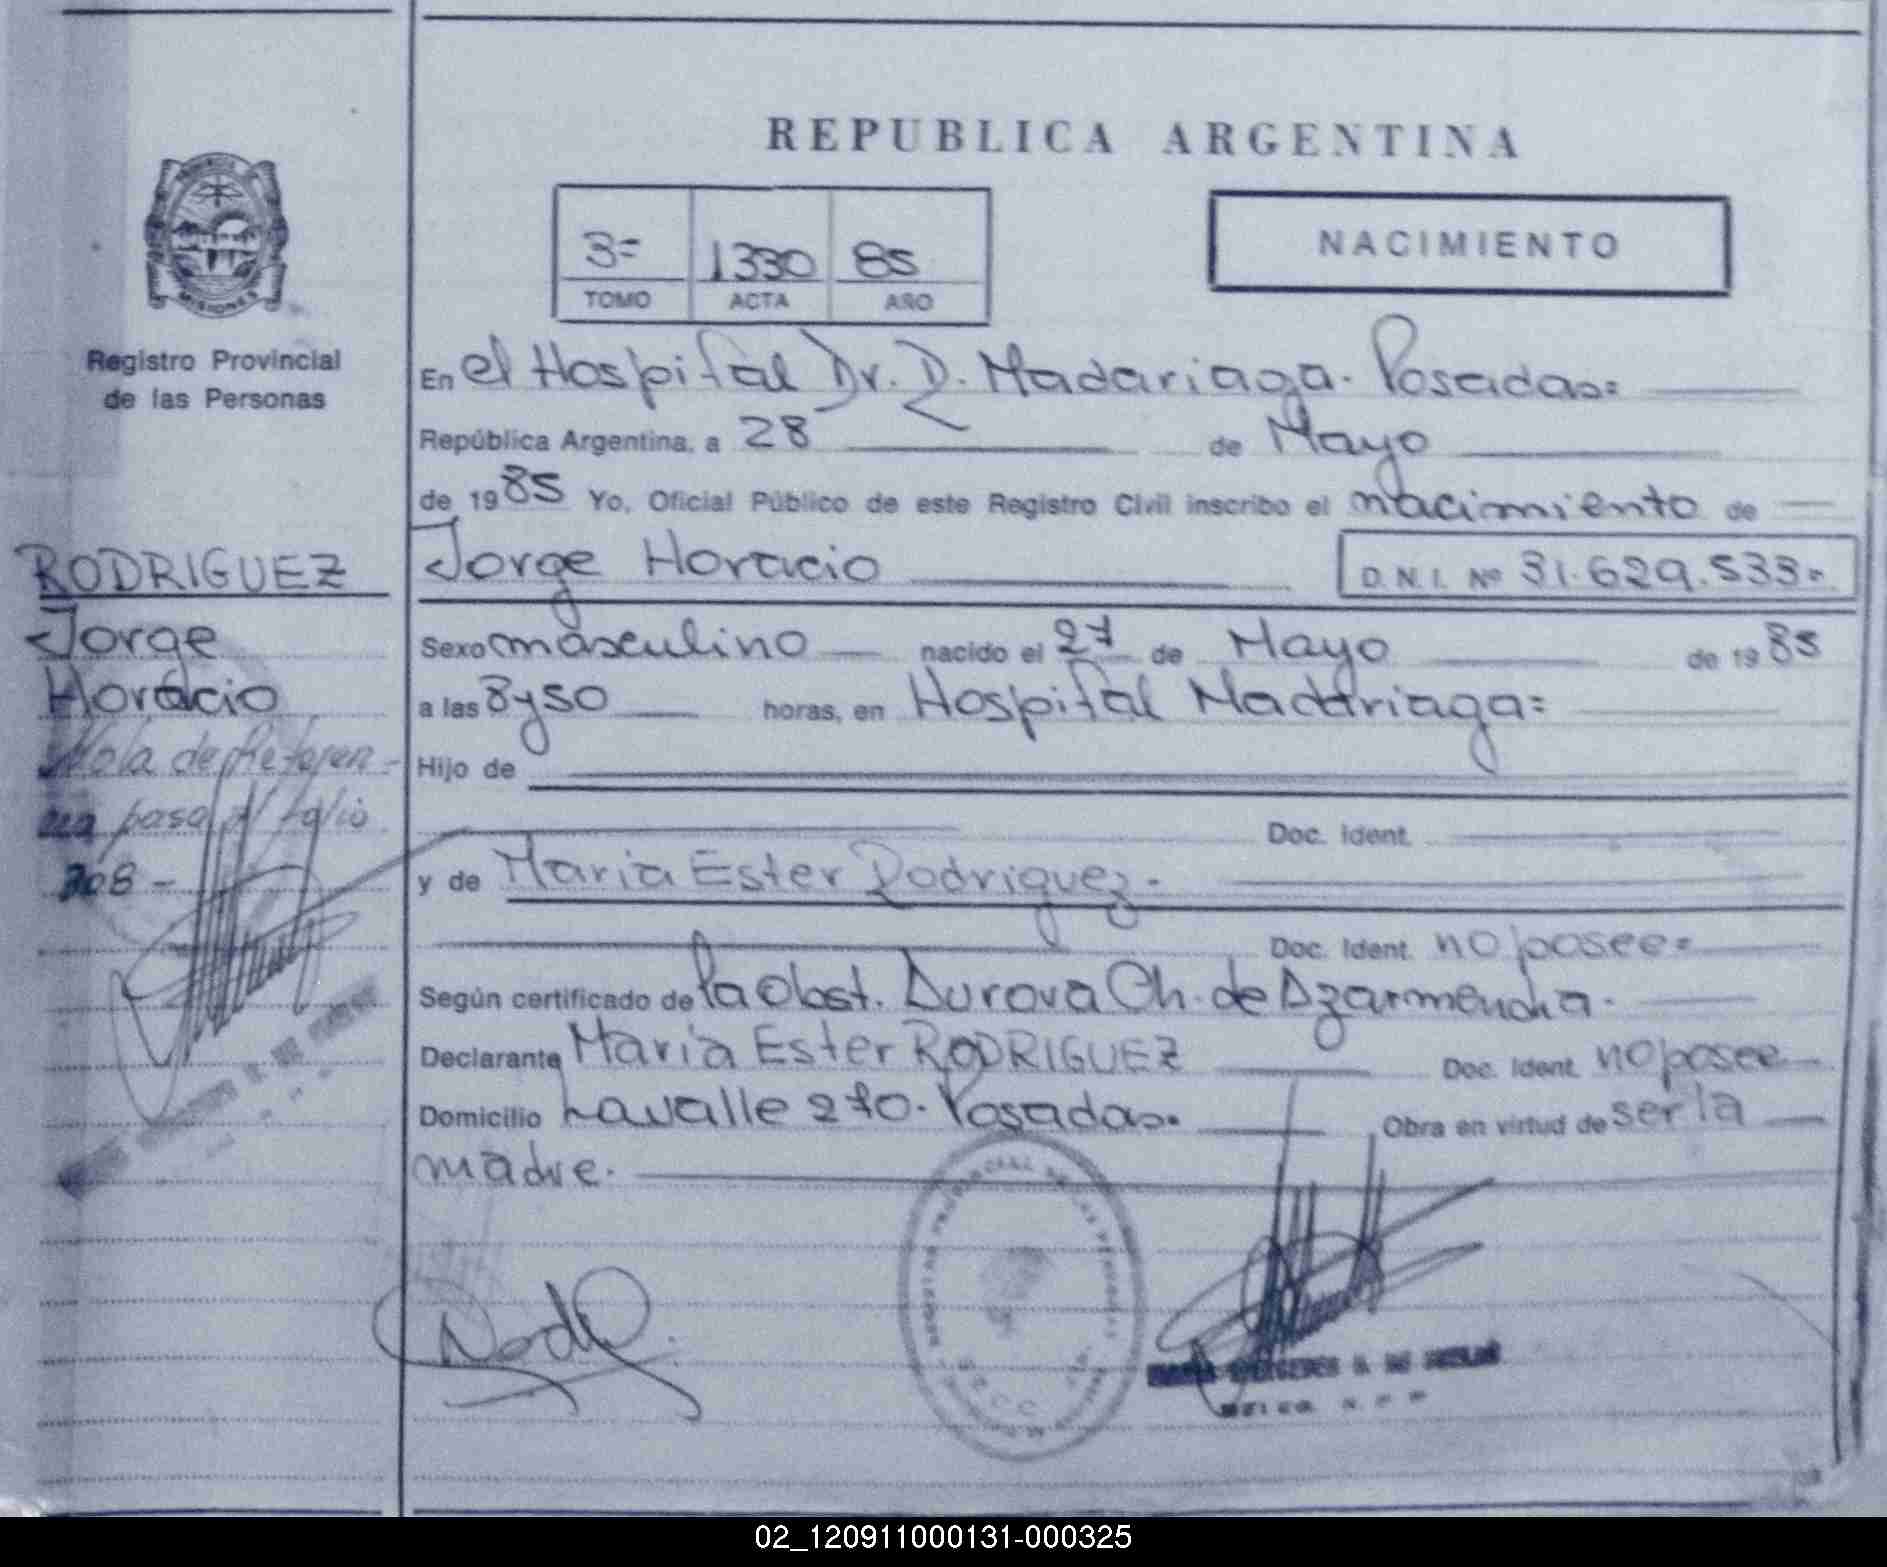 REPUBLICA ARGENTINA
3= 1330 85
TOMO ACTA AÑO
NACIMIENTO
MISIONES
Registro Provincial
de las Personas
En el Hospital Dr. D. Madariaga. Posadas=
República Argentina, a 28 de Mayo
de 1985 Yo, Oficial Público de este Registro Civil inscribo el nacimiento de
Jorge Horacio D.N.I. Nº 31.629.533=
RODRIGUEZ
Jorge
Horacio
Nota de Referen-
cia pasa al folio
208-
Sexo masculino nacido el 27 de Mayo de 1985
a las 8 y 50 horas, en Hospital Madariaga=
Hijo de
Doc. Ident.
y de Maria Ester Rodriguez.
Doc. Ident. no posee=
Según certificado de la Obst. Ch. de
Declarante Maria Ester RODRIGUEZ Doc. Ident. no posee
Domicilio Lavalle 270. Posadas. Obra en virtud de ser la
madre.
02_120911000131-000325